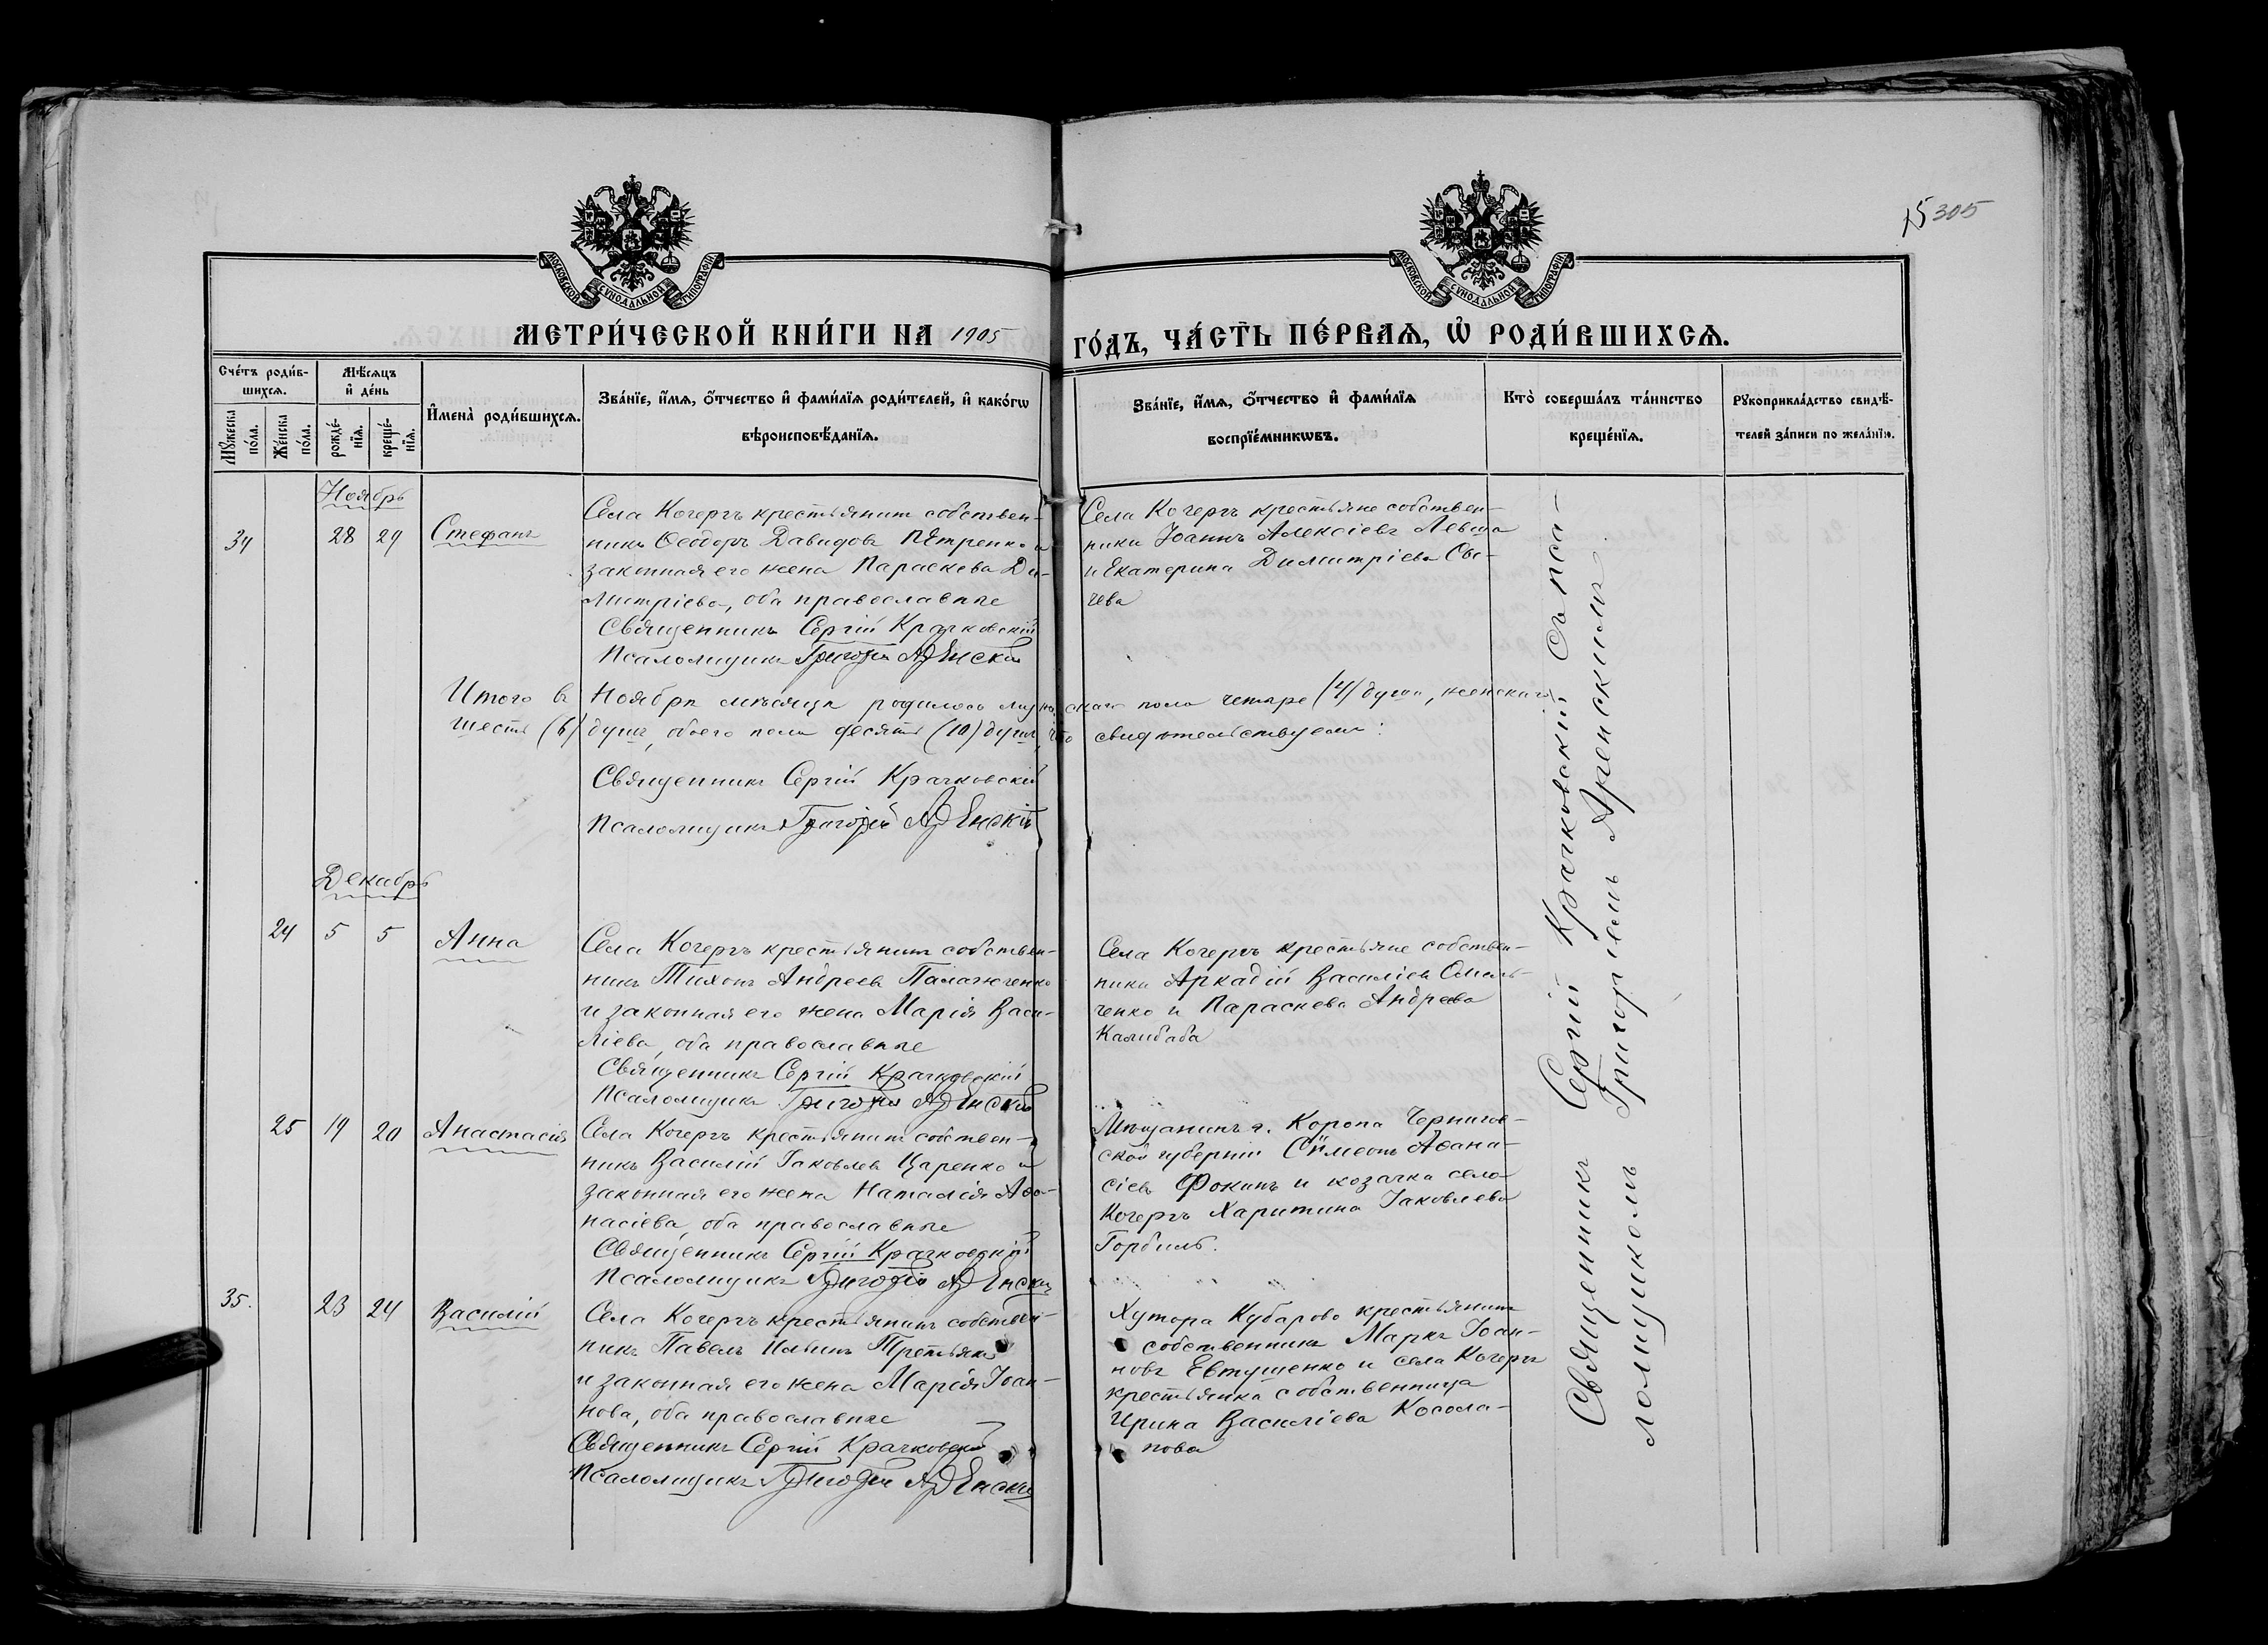 15 305
МОСКОВСКОЙ СѴНОДАЛЬНОЙ ТИПОГРАФІИ
МОСКОВСКОЙ СѴНОДАЛЬНОЙ ТИПОГРАФІИ
МЕТРИ́ЧЕСКОЙ КНИ́ГИ НА 1905 ГО́ДЪ, ЧА́СТЬ ПЕ́РВАѦ, Ѽ РОДИ́ВШИХСѦ.
Сче́тъ роди́в-
шихсѧ.
Мꙋжеска по́ла.
Же́нска по́ла.
Мѣ́сѧцъ
и҆ де́нь
рожде́-
нїѧ.
креще́-
нїѧ.
И҆мена̀ роди́вшихсѧ.
Зва́нїе, и҆́мѧ, ѻ҆́тчество и҆ фами́лїѧ роди́телей, и҆ како́гѡ
вѣроисповѣ́данїѧ.
Зва́нїе, и҆́мѧ, ѻ҆́тчество и҆ фами́лїѧ
воспрїе́мникѡвъ.
Кто̀ соверша́лъ та́инство
креще́нїѧ.
Рꙋкоприкла́дство свидѣ́-
телей за́писи по жела́нїю.
Ноябрь
34 28 29 Стефанъ
Села Кочергъ крестьянинъ собствен-
никъ Ѳеодоръ Давидовъ Петренко и
законная его жена Параскева Ди-
митріева, оба православные
Священникъ Сергій Крачковскій
Псаломщикъ Григорій Аренскій
Села Кочергъ крестьяне собствен-
ники Іоаннъ Алексіевъ Левша
и Екатерина Димитріева Сы-
чева
Итого въ Ноябрѣ мѣсяцѣ родилось мужескаго пола четыре (4) души, женскаго
шесть (6) душъ, обоего пола десять (10) душъ, что свидѣтельствуемъ:
Священникъ Сергій Крачковскій
Псаломщикъ Григорій Аренскій
Декабрь
24 5 5 Анна
Села Кочергъ крестьянинъ собствен-
никъ Тихонъ Андреевъ Палажченко
и законная его жена Марія Васи-
ліева, оба православные
Священникъ Сергій Крачковскій
Псаломщикъ Григорій Аренскій
Села Кочергъ крестьяне собствен-
ники Аркадій Василіевъ Омель-
ченко и Параскева Андреева
Калибаба
25 19 20 Анастасія
Села Кочергъ крестьянинъ собствен-
никъ Василій Іаковлевъ Царенко и
законная его жена Наталія Аѳа-
насіева, оба православные
Священникъ Сергій Крачковскій
Псаломщикъ Григорій Аренскій
Мѣщанинъ г. Коропа Чернигов-
ской губерніи Сѵмеонъ Аѳана-
сіевъ Фокинъ и козачка села
Кочергъ Харитина Іаковлева
Горбиль.
35. 23 24 Василій
Села Кочергъ крестьянинъ собствен-
никъ Павелъ Ильинъ Третьякъ
и законная его жена Марія Іоан-
нова, оба православные
Священникъ Сергій Крачковскій
Псаломщикъ Григорій Аренскій
Хутора Кубарово крестьянинъ
собственникъ Маркъ Іоан-
новъ Евтушенко и села Кочергъ
крестьянка собственница
Ирина Василіева Косола-
пова
Священникъ Сергій Крачковскій съ пса-
ломщикомъ Григоріемъ Аренскимъ.